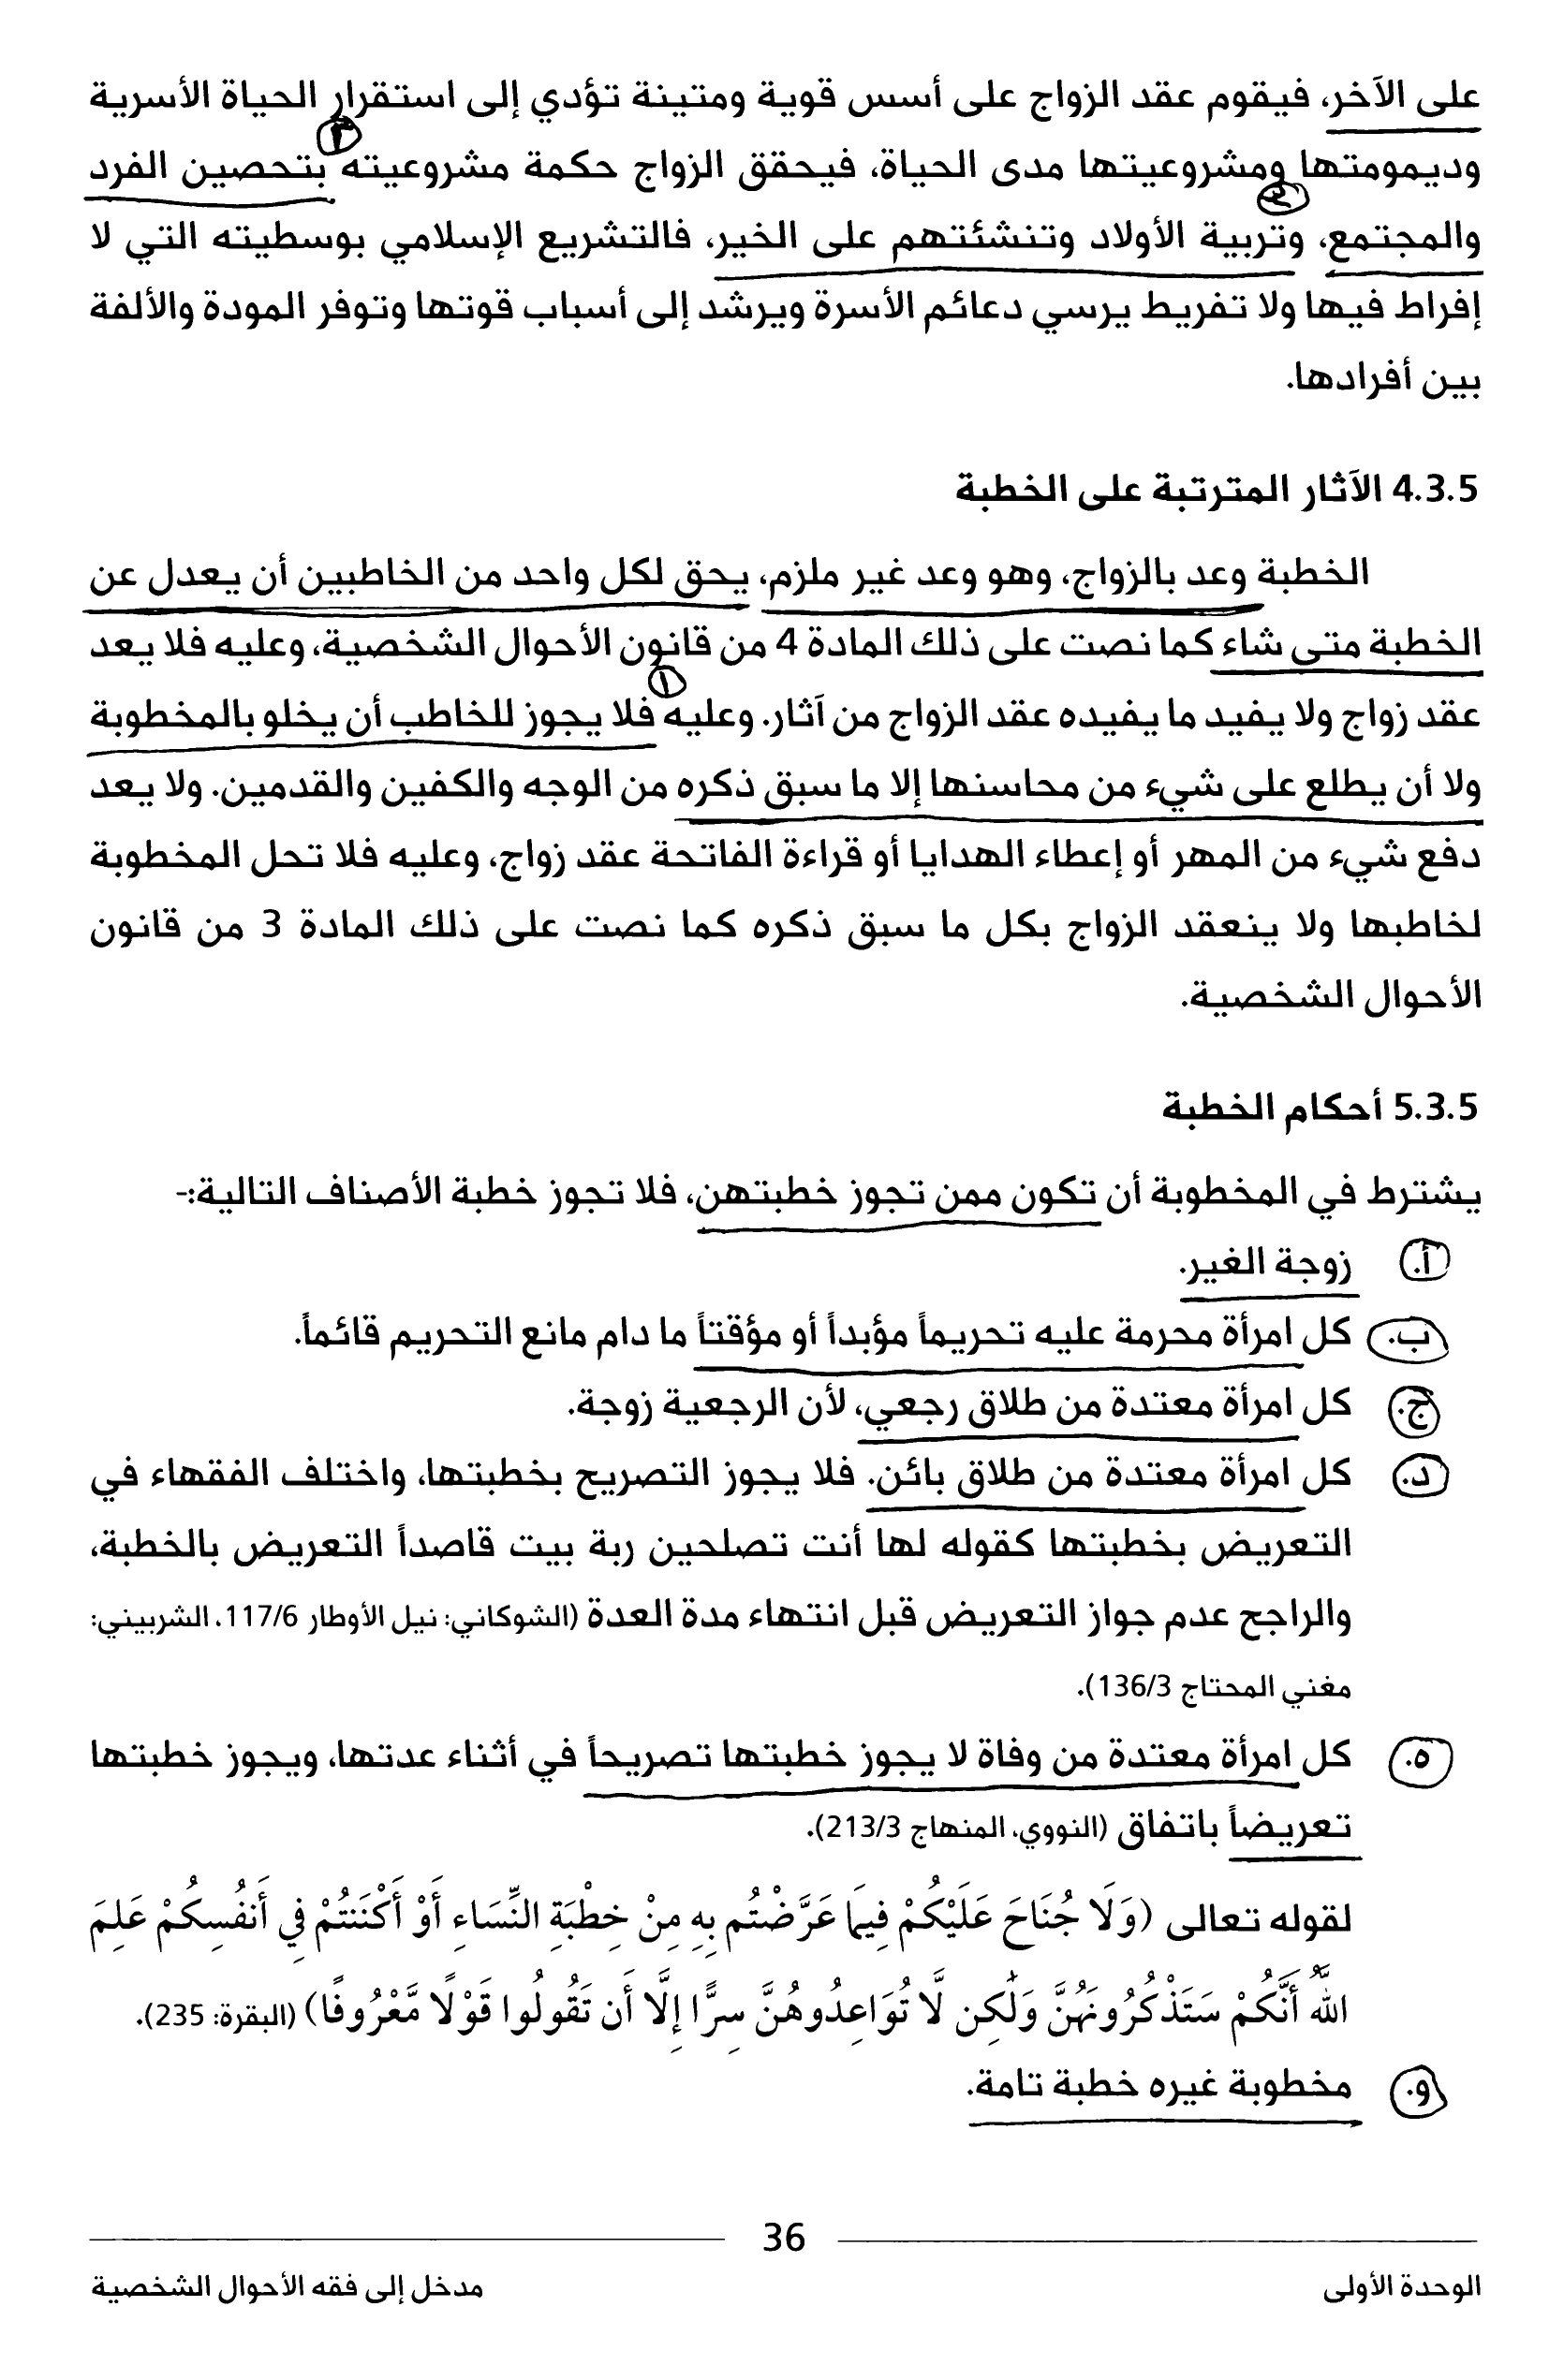 على الآخر، فيقوم عقد الزواج على أسس قوية ومتينة تؤدي إلى استقرار الحياة الأسرية
وديمومتها ومشروعيتها مدى الحياة، فيحقق الزواج حكمة مشروعيته بتحصين الفرد
والمجتمع، وتربية الأولاد وتنشئتهم على الخير، فالتشريع الإسلامي بوسطيته التي لا
إفراط فيها ولا تفريط يرسي دعائم الأسرة ويرشد إلى أسباب قوتها وتوفر المودة والألفة
بين أفرادها.
4.3.5 الآثار المترتبة على الخطبة
الخطبة وعد بالزواج، وهو وعد غير ملزم، يحق لكل واحد من الخاطبين أن يعدل عن
الخطبة متى شاء كما نصت على ذلك المادة 4 من قانون الأحوال الشخصية، وعليه فلا يعد
١
عقد زواج ولا يفيد ما يفيده عقد الزواج من آثار. وعليه فلا يجوز للخاطب أن يخلو بالمخطوبة
ولا أن يطلع على شيء من محاسنها إلا ما سبق ذكره من الوجه والكفين والقدمين. ولا يعد
دفع شيء من المهر أو إعطاء الهدايا أو قراءة الفاتحة عقد زواج، وعليه فلا تحل المخطوبة
لخاطبها ولا ينعقد الزواج بكل ما سبق ذكره كما نصت على ذلك المادة 3 من قانون
الأحوال الشخصية.
5.3.5 أحكام الخطبة
يشترط في المخطوبة أن تكون ممن تجوز خطبتهن، فلا تجوز خطبة الأصناف التالية:-
أ. زوجة الغير.
ب. كل امرأة محرمة عليه تحريماً مؤبداً أو مؤقتاً ما دام مانع التحريم قائماً.
ج. كل امرأة معتدة من طلاق رجعي، لأن الرجعية زوجة.
د. كل امرأة معتدة من طلاق بائن. فلا يجوز التصريح بخطبتها، واختلف الفقهاء في
التعريض بخطبتها كقوله لها أنت تصلحين ربة بيت قاصداً التعريض بالخطبة،
والراجح عدم جواز التعريض قبل انتهاء مدة العدة (الشوكاني: نيل الأوطار 117/6، الشربيني:
مغني المحتاج 136/3).
ه. كل امرأة معتدة من وفاة لا يجوز خطبتها تصريحاً في أثناء عدتها، ويجوز خطبتها
تعريضاً باتفاق (النووي، المنهاج 213/3).
لقوله تعالى (وَلَا جُنَاحَ عَلَيْكُمْ فِيمَا عَرَّضْتُم بِهِ مِنْ خِطْبَةِ النِّسَاءِ أَوْ أَكْنَنتُمْ فِي أَنفُسِكُمْ عَلِمَ
اللَّهُ أَنَّكُمْ سَتَذْكُرُونَهُنَّ وَلَٰكِن لَّا تُوَاعِدُوهُنَّ سِرًّا إِلَّا أَن تَقُولُوا قَوْلًا مَّعْرُوفًا) (البقرة: 235).
و. مخطوبة غيره خطبة تامة.
36
الوحدة الأولى
مدخل إلى فقه الأحوال الشخصية